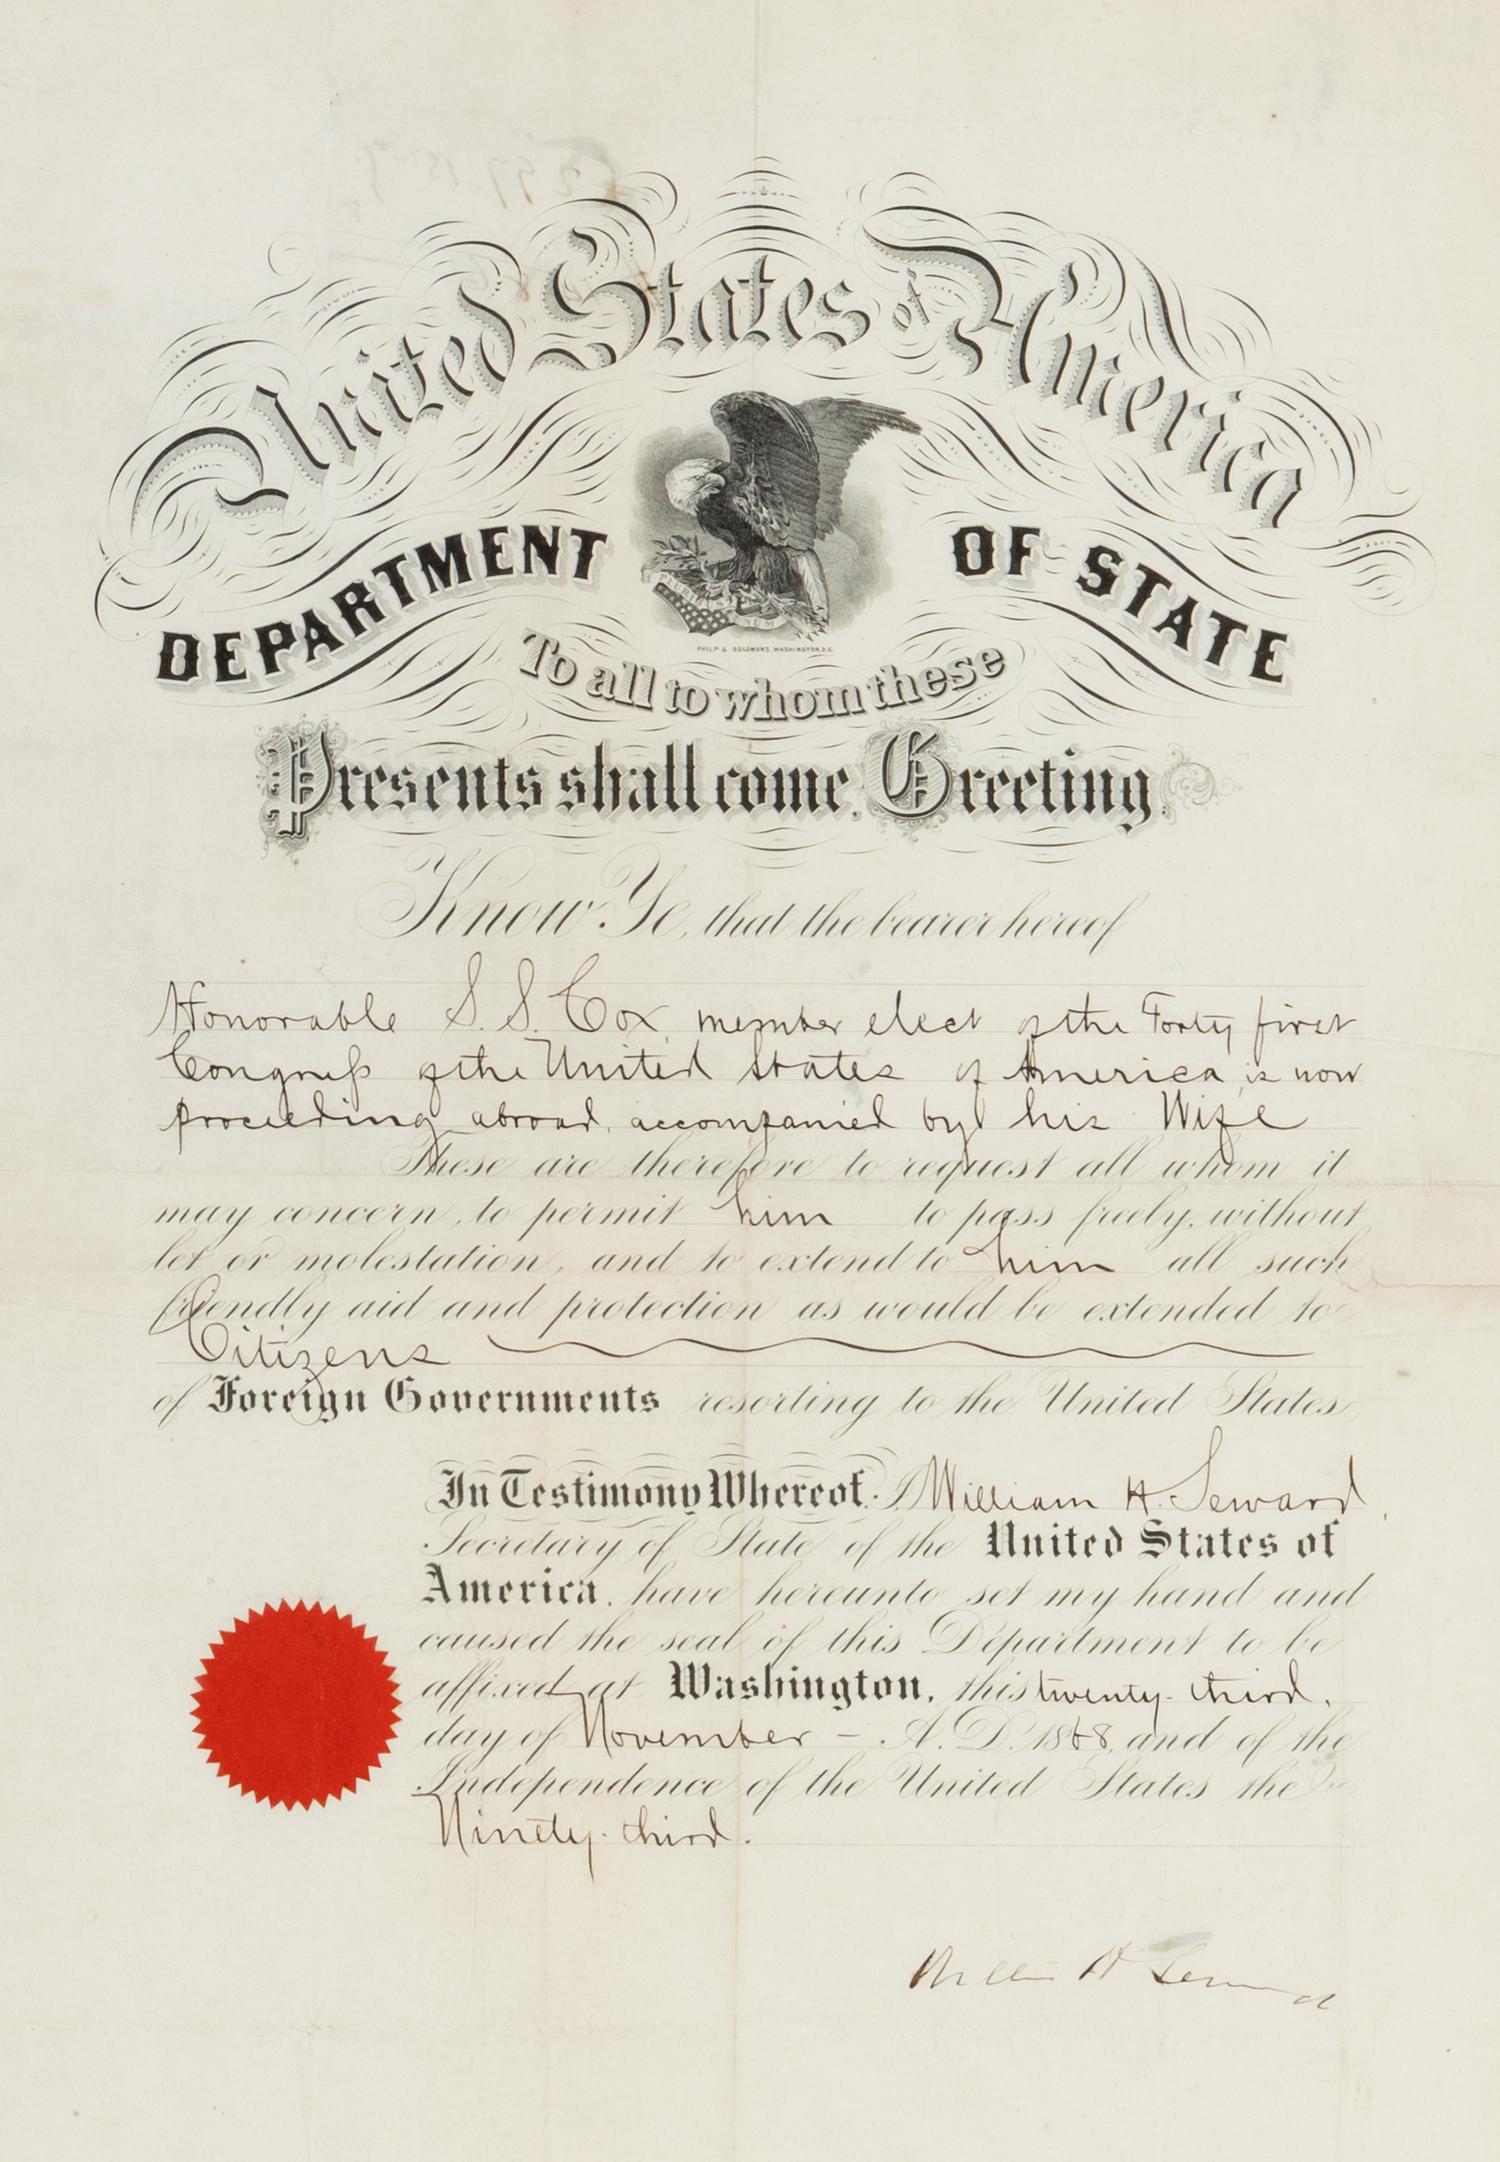 United States of America
DEPARTMENT OF STATE
PHILP & SOLOMONS, WASHINGTON, D.C.
To all to whom these
Presents shall come, Greeting,
Know Ye, that the bearer hereof
Honorable S. S. Cox, member elect of the Forty first
Congress of the United States of America, is now
proceeding abroad, accompanied by his Wife
These are therefore to request all whom it
may concern, to permit him to pass freely, without
let or molestation, and to extend to him all such
friendly aid and protection as would be extended to
Citizens
of Foreign Governments resorting to the United States
In Testimony Whereof, I William H. Seward,
Secretary of State of the United States of
America, have hereunto set my hand and
caused the seal of this Department to be
affixed at Washington, this twenty-third.
day of November – A.D. 1868, and of the
Independence of the United States the
Ninety-third.
William H Seward